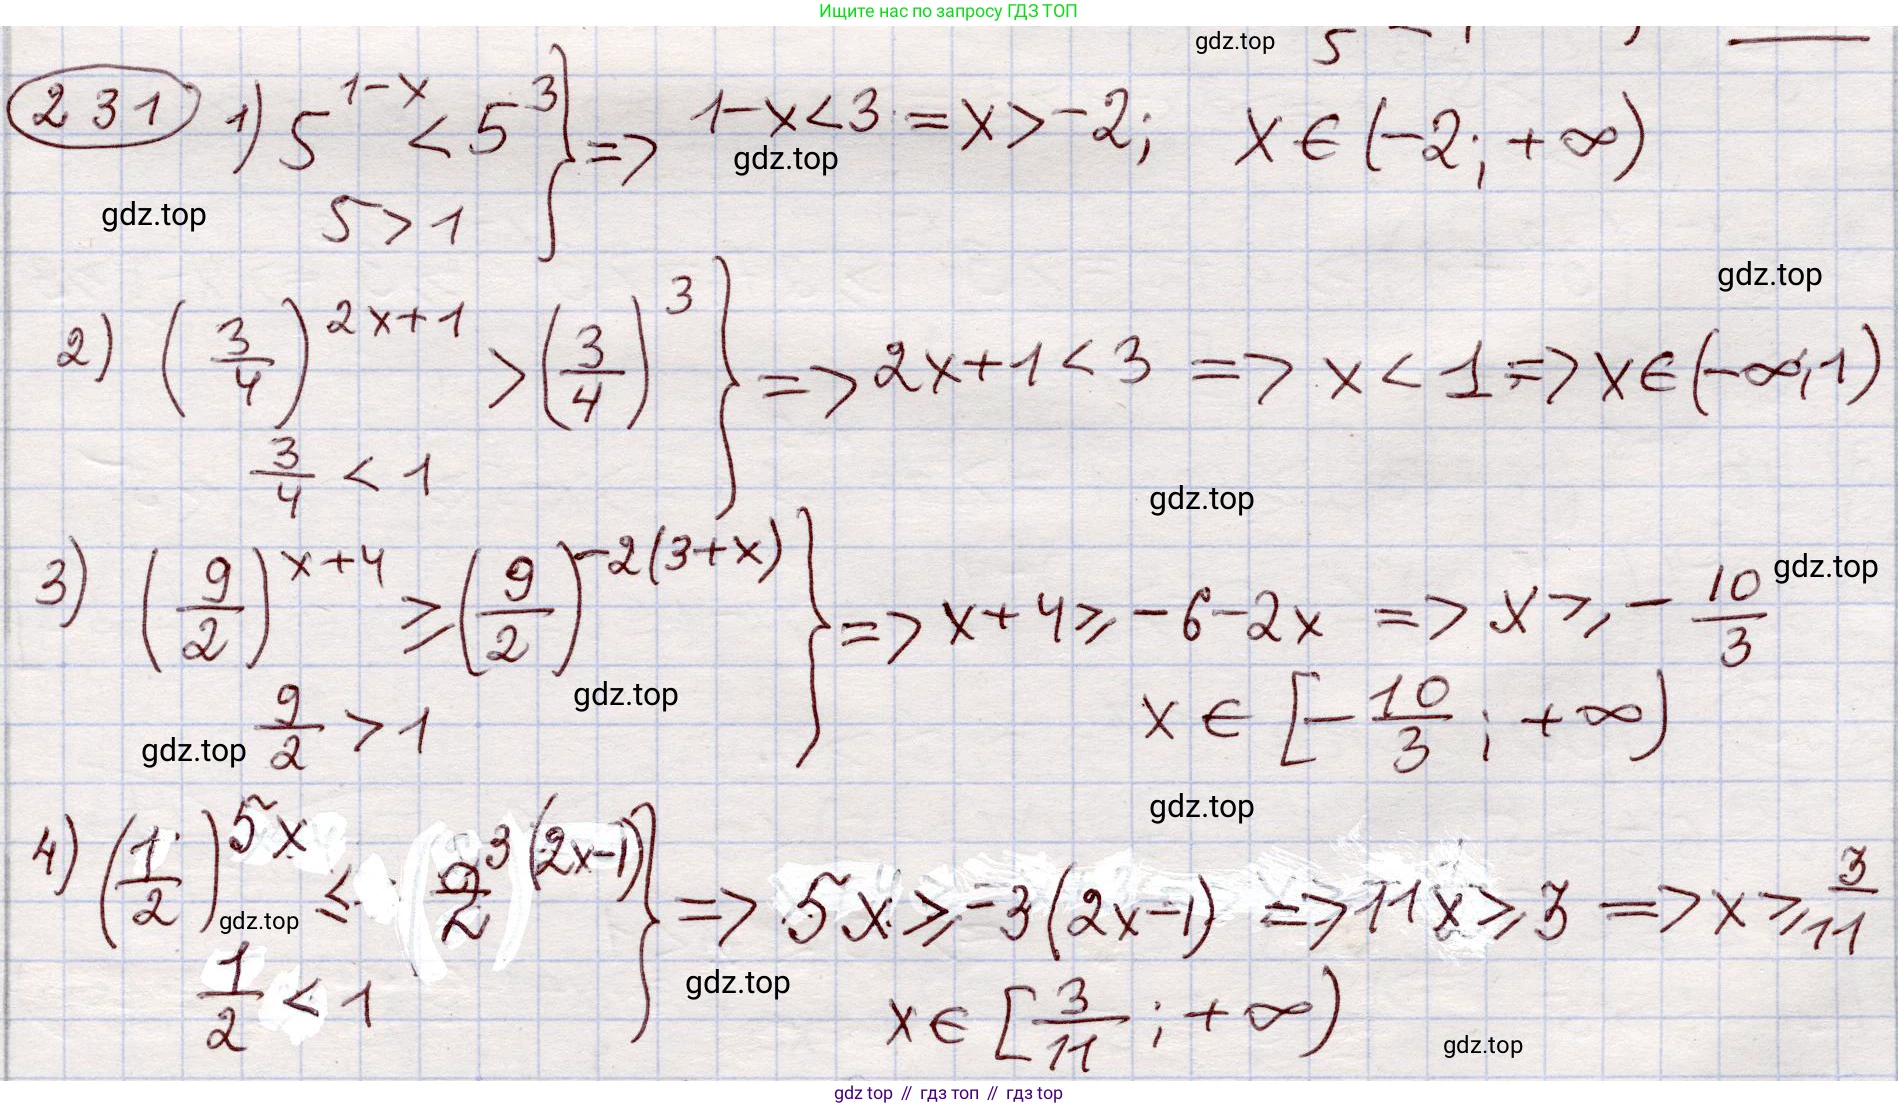 Ищите нас по запросу ГДЗ ТОП
gdz.top
231 1) 5^{1-x} < 5^3 } => 1-x<3 = x>-2; x∈(-2;+∞)
gdz.top
5>1
gdz.top
gdz.top
2) (3/4)^{2x+1} > (3/4)^3 } => 2x+1<3 => x<1 => x∈(-∞;1)
3/4 < 1
gdz.top
3) (9/2)^{x+4} ⩾ (9/2)^{-2(3+x)} } => x+4⩾-6-2x => x⩾-10/3
gdz.top
9/2 > 1
gdz.top
x∈[-10/3;+∞)
gdz.top
gdz.top
4) (1/2)^{5x} ≤ (2/2)^{3(2x-1)} } => 5x⩾-3(2x-1) => 11x⩾3 => x⩾3/11
gdz.top
1/2 < 1
gdz.top
x∈[3/11;+∞)
gdz.top
gdz top // гдз топ // гдз top